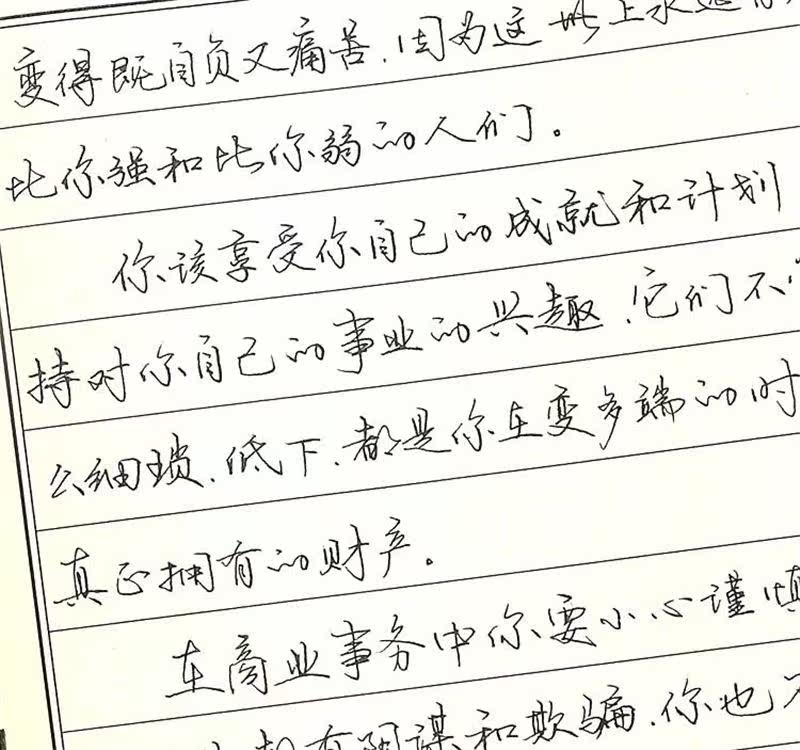 变得既自负又痛苦，因为这世上永远
比你强和比你弱的人们。
你该享受你自己的成就和计划
持对你自己的事业的兴趣，它们不
么细琐、低下，都是你在变多端的时
真正拥有的财产。
在商业事务中你要小心谨慎
有阴谋和欺骗，你也不